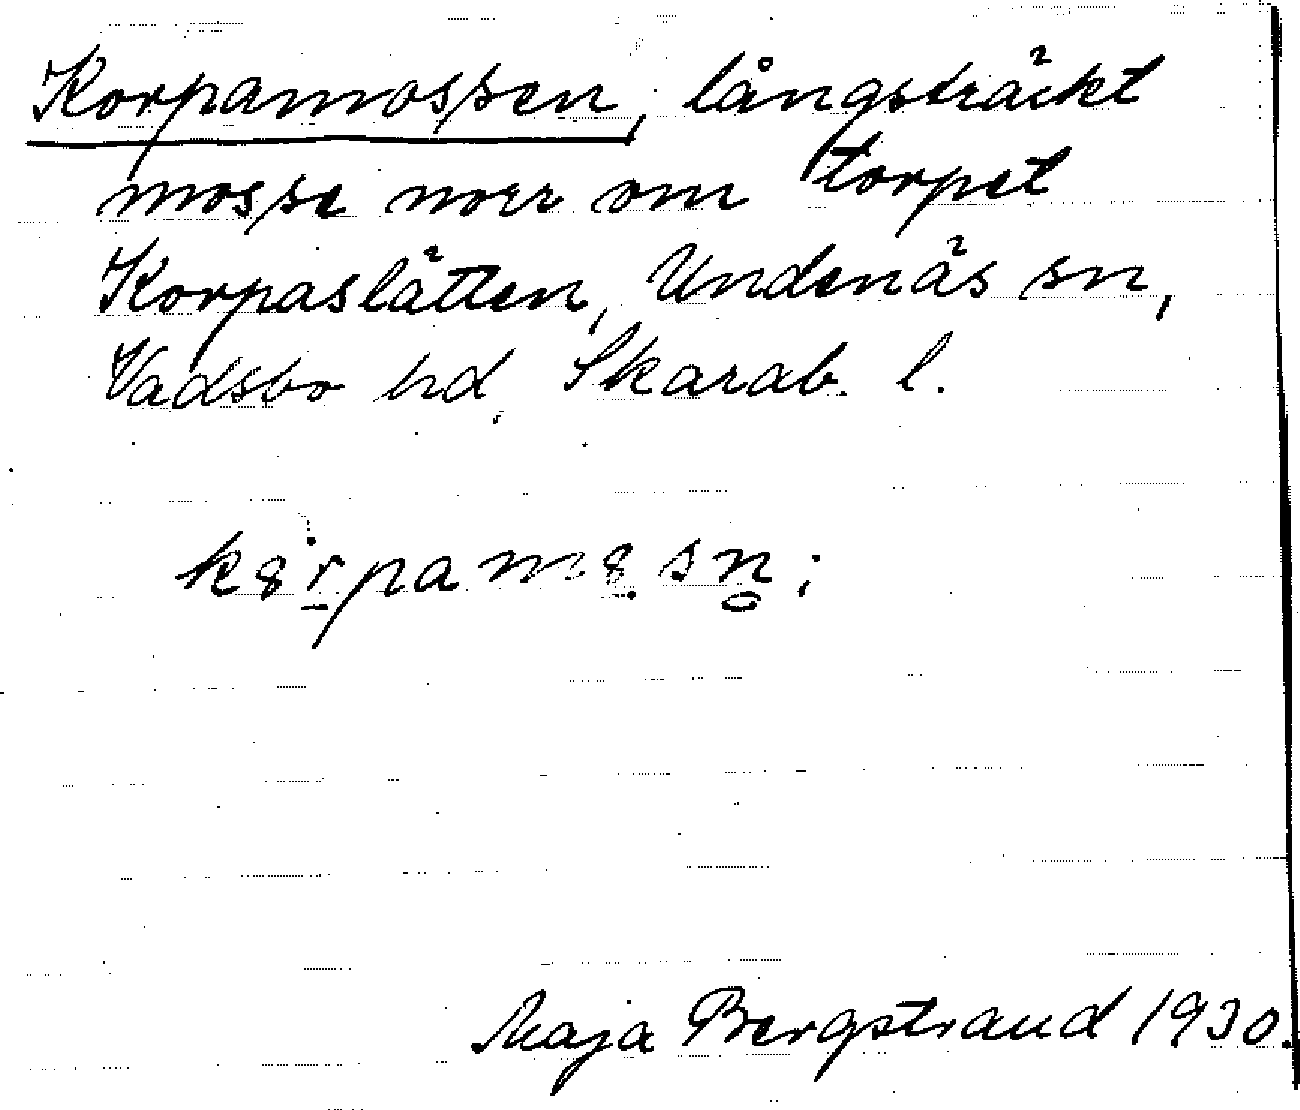 Korpamossen, långsträckt
mosse norr om torpet
Korpaslätten, Undenäs sn,
Vadsbo hd, Skarab. l.
Maja Bergstrand 1930.